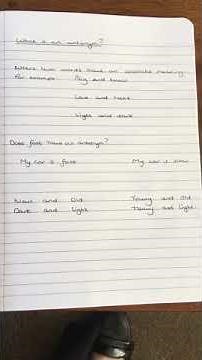 What is an antonym?
Where two words have an opposite meaning.
For example
Love and hate
Light and dark
Does fast have an antonym?
My car is fast My car is slow
New and Old Young and Old
Dark and Light Heavy and Light